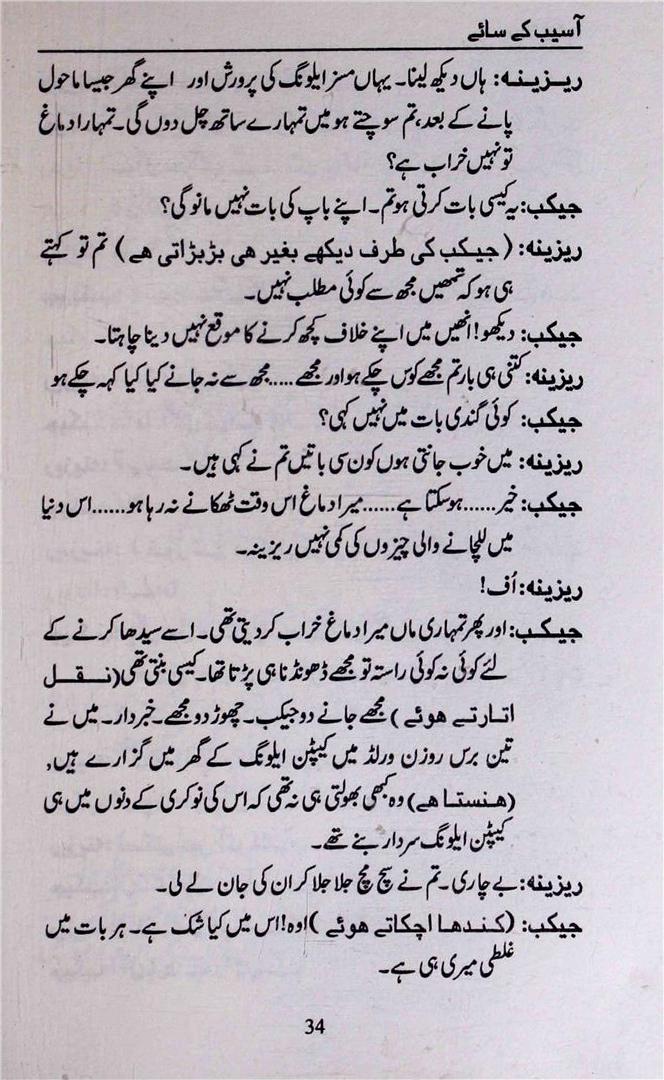 آسیب کے سائے
ریزینہ: ہاں دیکھ لینا۔ یہاں مسز ایلونگ کی پرورش اور اپنے گھر جیسا ماحول
پانے کے بعد، تم سوچتے ہو میں تمہارے ساتھ چل دوں گی۔ تمہارا دماغ
تو نہیں خراب ہے؟
جیکب: یہ کیسی بات کرتی ہو تم۔ اپنے باپ کی بات نہیں مانو گی؟
ریزینہ: (جیکب کی طرف دیکھے بغیر ھی بڑبڑاتی ھے) تم تو کہتے
ہی ہو کہ تمھیں مجھ سے کوئی مطلب نہیں۔
جیکب: دیکھو! انھیں میں اپنے خلاف کچھ کرنے کا موقع نہیں دینا چاہتا۔
ریزینہ: کتنی ہی بار تم مجھے کوس چکے ہو اور مجھے ..... مجھ سے نہ جانے کیا کیا کہہ چکے ہو
جیکب: کوئی گندی بات میں نہیں کہی؟
ریزینہ: میں خوب جانتی ہوں کون سی باتیں تم نے کہی ہیں۔
جیکب: خیر...... ہو سکتا ہے...... میرا دماغ اس وقت ٹھکانے نہ رہا ہو...... اس دنیا
میں للچانے والی چیزوں کی کمی نہیں ریزینہ۔
ریزینہ: اُف!
جیکب: اور پھر تمہاری ماں میرا دماغ خراب کر دیتی تھی۔ اسے سیدھا کرنے کے
لئے کوئی نہ کوئی راستہ تو مجھے ڈھونڈنا ہی پڑتا تھا۔ کیسی بنتی تھی (نقل
اتارتے ھوئے) مجھے جانے دو جیکب۔ چھوڑ دو مجھے۔ خبردار۔ میں نے
تین برس روزن ورلڈ میں کیپٹن ایلونگ کے گھر میں گزارے ہیں،
(ھنستا ھے) وہ کبھی بھولتی ہی نہ تھی کہ اس کی نوکری کے دنوں میں ہی
کیپٹن ایلونگ سردار بنے تھے۔
ریزینہ: بے چاری۔ تم نے سچ مچ جلا جلا کر ان کی جان لے لی۔
جیکب: (کندھا اچکاتے ھوئے) اوہ! اس میں کیا شک ہے۔ ہر بات میں
غلطی میری ہی ہے۔
34